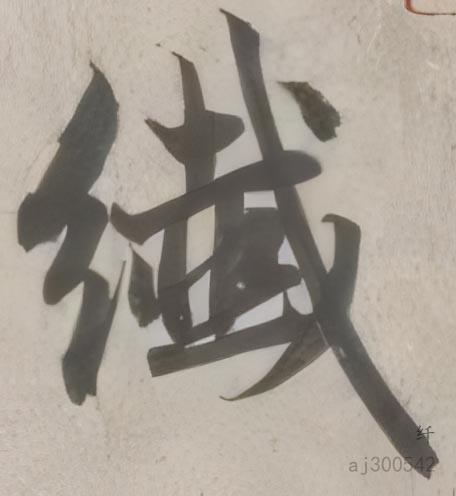 纖
纤
aj300542